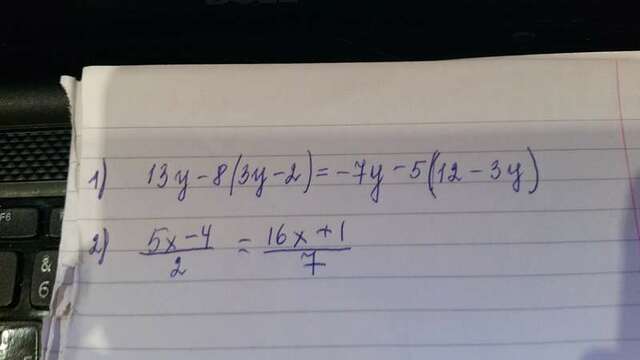 1) 13y - 8(3y - 2) = -7y - 5(12 - 3y)
2) (5x - 4)/2 = (16x + 1)/7
F6
&
6